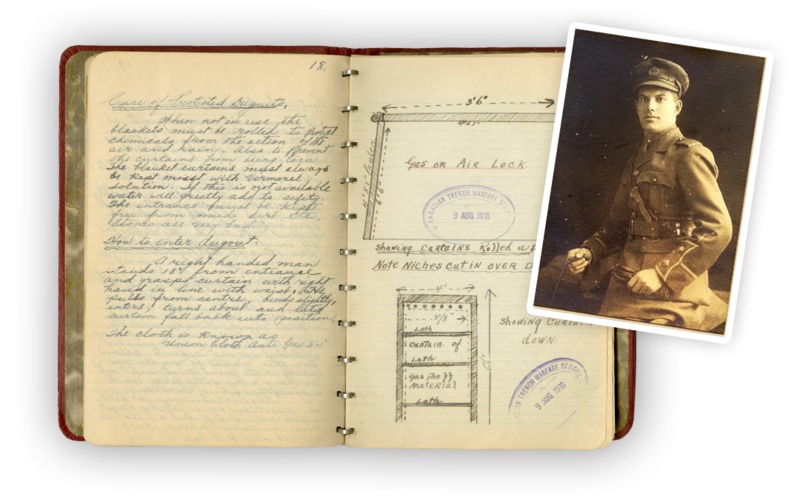 18.
Care of Protected Dugouts.
When not in use the
blankets must be rolled to protect
chemicals from the action of the
air and rain, also to prevent
the curtains from being torn.
The blanket curtains must always
be kept moist with Vermorel
solution. If this is not available
water will greatly add to safety.
The entrance must be kept
free from mud, dirt etc.
stones are very bad.
How to enter dugout.
A right handed man
stands 18" from entrance
and grasps curtain with right
hand in line with waist,
pulls from centre, bends slightly,
enters, turns about and lets
curtain fall back into position.
The cloth is known as
Union Cloth Anti Gas
3'6"
GAS OR AIR LOCK
CANADIAN TRENCH WARFARE SCHOOL
9 AUG. 1918
Showing Curtains Rolled up
Note Niches Cut in over D
4'
3/8"
Lath
Curtain of
Lath
Gas Proff
Material
Lath
Showing Curtain
down.
CANADIAN TRENCH WARFARE SCHOOL
9 AUG. 1918